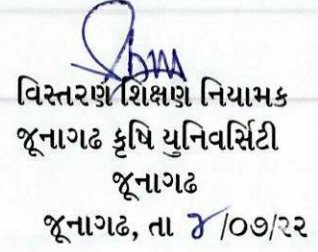 વિસ્તરણ શિક્ષણ નિયામક
જૂનાગઢ કૃષિ યુનિવર્સિટી
જૂનાગઢ
જૂનાગઢ, તા ૪ /૦૭/૨૨